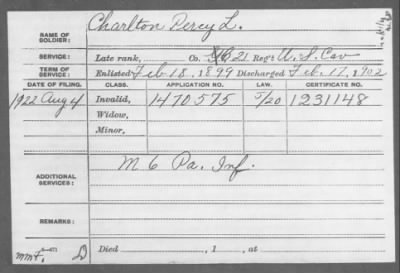 NAME OF SOLDIER: Charlton Percy L.
SERVICE: Late rank, Co. 21 Reg't U.S. Cav
TERM OF SERVICE: Enlisted Feb 18, 1899 Discharged Feb. 17, 1902
DATE OF FILING. CLASS. APPLICATION NO. LAW. CERTIFICATE NO.
1922 Aug 4 Invalid, 1470575 5/20 1231148
Widow,
Minor,
ADDITIONAL SERVICES: M 6 Pa. Inf.
REMARKS:
Died , 1 , at